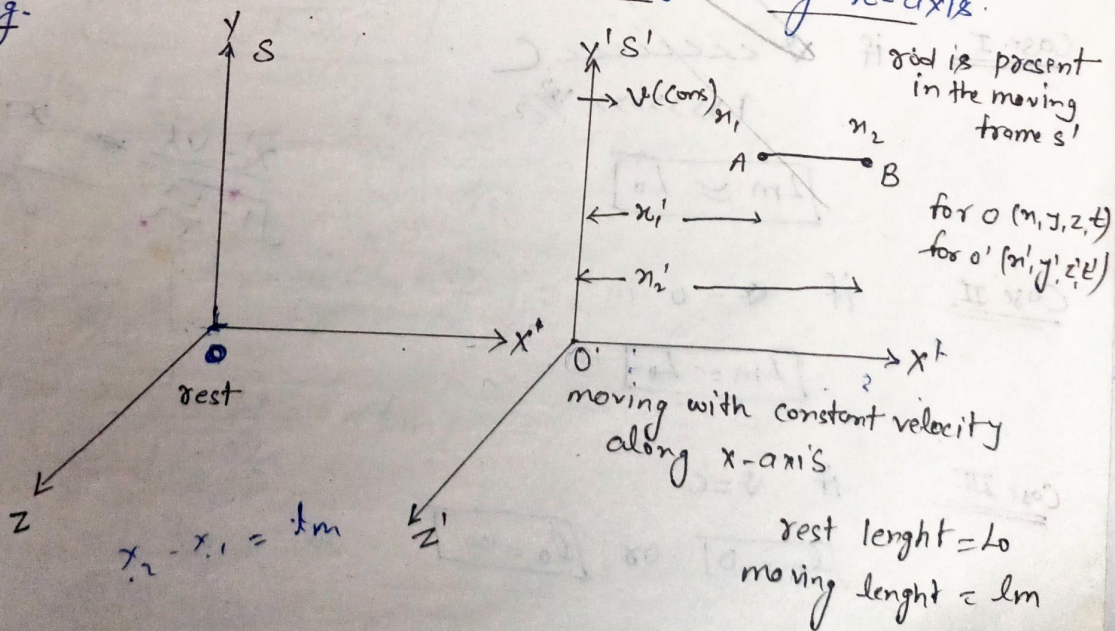 x-axis.
Y
S
Y' S'
v(cons)
x₁
x₂
A
B
rod is present
in the moving
frame s'
x₁'
x₂'
for o (x, y, z, t)
for o' (x', y', z', t')
X
O
rest
Z
O'
X
moving with constant velocity
along x-axis
Z'
x₂ - x₁ = lm
rest lenght = Lo
moving lenght = lm